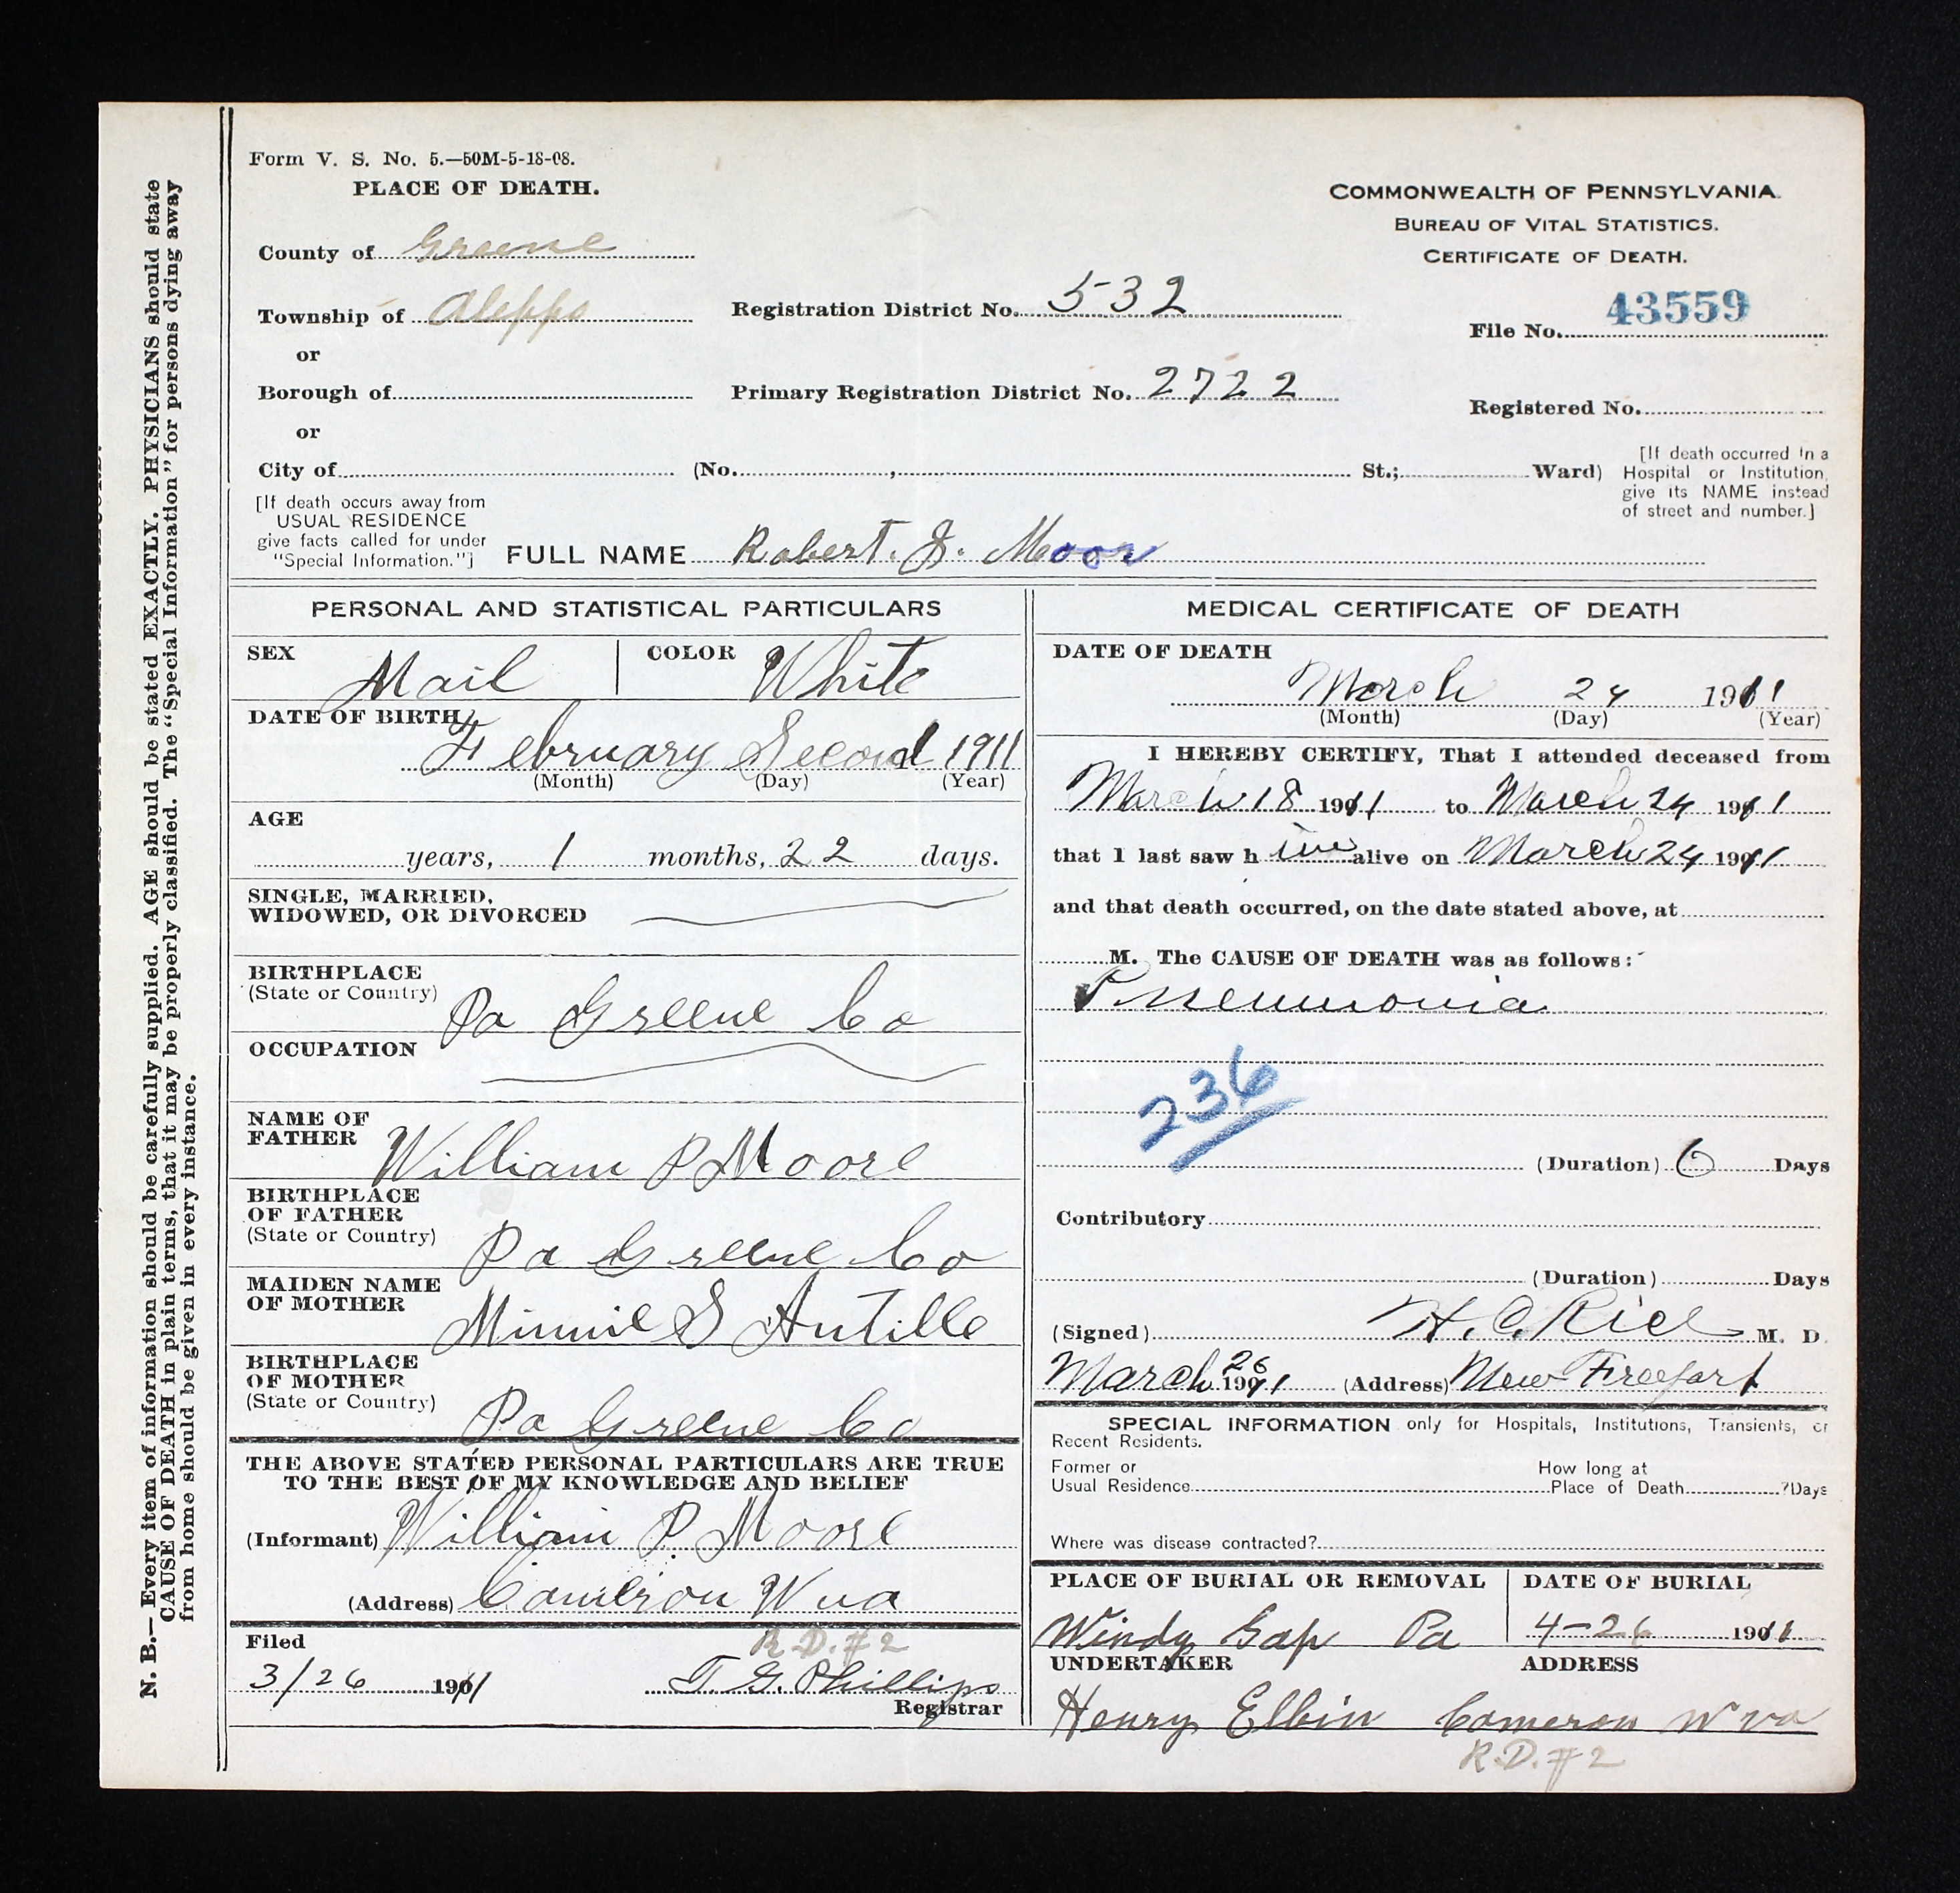 N. B.—Every item of information should be carefully supplied. AGE should be stated EXACTLY. PHYSICIANS should state
CAUSE OF DEATH in plain terms, that it may be properly classified. The "Special Information" for persons dying away
from home should be given in every instance.
Form V. S. No. 5.—50M-5-18-08.
PLACE OF DEATH.
COMMONWEALTH OF PENNSYLVANIA.
BUREAU OF VITAL STATISTICS.
CERTIFICATE OF DEATH.
County of Greene
Township of Aleppo
Registration District No. 532
File No. 43559
or
Borough of
Primary Registration District No. 2722
Registered No.
or
City of (No. , St.; Ward)
[If death occurred in a
Hospital or Institution,
give its NAME instead
of street and number.]
[If death occurs away from
USUAL RESIDENCE
give facts called for under
"Special Information."]
FULL NAME Robert. J. Moor
PERSONAL AND STATISTICAL PARTICULARS
SEX Mail
COLOR White
DATE OF BIRTH
February Second 1911
(Month) (Day) (Year)
AGE
years, 1 months, 22 days.
SINGLE, MARRIED,
WIDOWED, OR DIVORCED
BIRTHPLACE
(State or Country) Pa Greene Co
OCCUPATION
NAME OF
FATHER William P Moore
BIRTHPLACE
OF FATHER
(State or Country) Pa Greene Co
MAIDEN NAME
OF MOTHER Minnie S Antill
BIRTHPLACE
OF MOTHER
(State or Country) Pa Greene Co
THE ABOVE STATED PERSONAL PARTICULARS ARE TRUE
TO THE BEST OF MY KNOWLEDGE AND BELIEF
(Informant) William P. Moore
(Address) Cameron W va
R.D. #2
Filed
3/26 1911 T. G. Phillips
Registrar
MEDICAL CERTIFICATE OF DEATH
DATE OF DEATH
March 24 1911
(Month) (Day) (Year)
I HEREBY CERTIFY, That I attended deceased from
March 18 1911 to March 24 1911
that I last saw h im alive on March 24 1911
and that death occurred, on the date stated above, at
M. The CAUSE OF DEATH was as follows:
Pneumonia
236
(Duration) 6 Days
Contributory
(Duration) Days
(Signed) H. C. Rice M. D.
March 26 1911 (Address) New Freeport
SPECIAL INFORMATION only for Hospitals, Institutions, Transients, or
Recent Residents.
Former or
Usual Residence
How long at
Place of Death ?Days
Where was disease contracted?
PLACE OF BURIAL OR REMOVAL
Windy Gap Pa
DATE OF BURIAL
4-26 1911
UNDERTAKER
Henry Elbin
ADDRESS
Cameron W va
R.D. #2